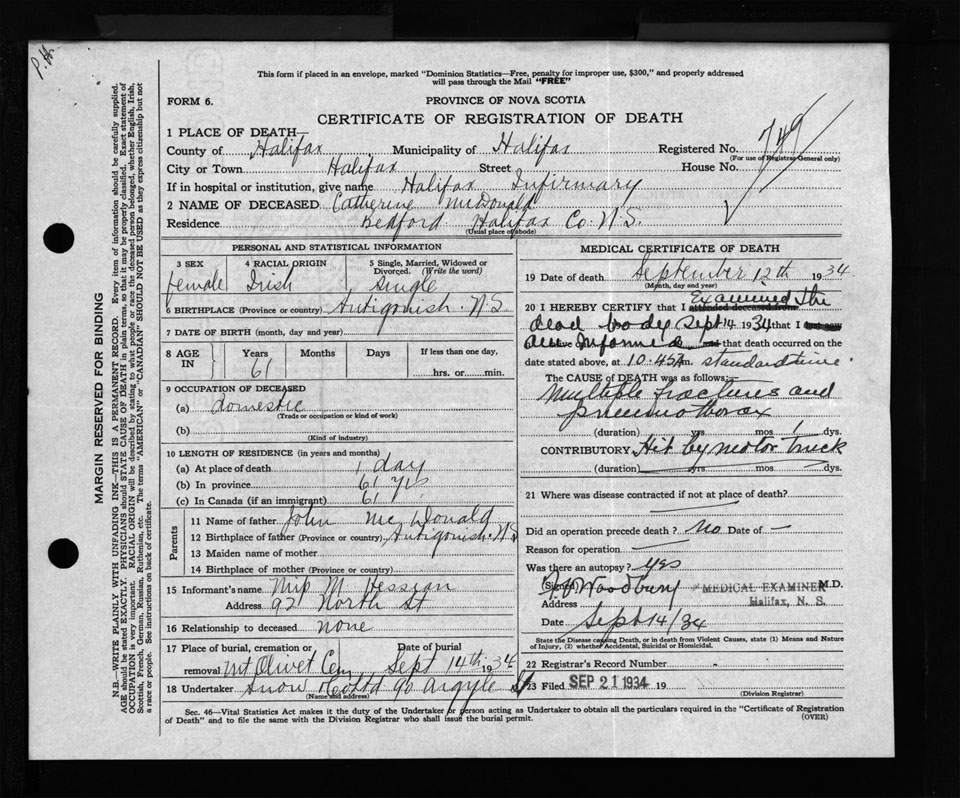 P.H.
This form if placed in an envelope, marked "Dominion Statistics—Free, penalty for improper use, $300," and properly addressed
will pass through the Mail "FREE"
FORM 6.
PROVINCE OF NOVA SCOTIA
CERTIFICATE OF REGISTRATION OF DEATH
1 PLACE OF DEATH—
County of Halifax Municipality of Halifax Registered No. 749
(For use of Registrar General only)
City or Town Halifax Street House No.
If in hospital or institution, give name Halifax Infirmary
2 NAME OF DECEASED Catherine McDonald
Residence Bedford Halifax Co N.S.
(Usual place of abode)
PERSONAL AND STATISTICAL INFORMATION
3 SEX 4 RACIAL ORIGIN 5 Single, Married, Widowed or
Divorced. (Write the word)
female Irish Single
6 BIRTHPLACE (Province or country) Antigonish. N.S.
7 DATE OF BIRTH (month, day and year)
8 AGE IN Years Months Days If less than one day,
61 hrs. or min.
9 OCCUPATION OF DECEASED
(a) domestic
(Trade or occupation or kind of work)
(b)
(Kind of industry)
10 LENGTH OF RESIDENCE (in years and months)
(a) At place of death 1 day
(b) In province 61 yrs
(c) In Canada (if an immigrant) 61
Parents
11 Name of father John McDonald
12 Birthplace of father (Province or country) Antigonish. N.S
13 Maiden name of mother
14 Birthplace of mother (Province or country)
15 Informant's name M Hessian
Address 92 North St
16 Relationship to deceased none
17 Place of burial, cremation or Date of burial
removal Mt Olivet Cem Sept 14th 1934
18 Undertaker Snow & Co Ltd 90 Argyle St
(Name and address)
MEDICAL CERTIFICATE OF DEATH
19 Date of death September 12th 1934
(Month, day and year)
20 I HEREBY CERTIFY that I attended deceased from Examined the
dead body Sept 14 1934 that I last saw
alive Informed and that death occurred on the
date stated above, at 10.45A m. standard time
The CAUSE of DEATH was as follows:
Multiple fractures and
pneumothorax
(duration) yrs mos 1 dys.
CONTRIBUTORY Hit by motor truck
(duration) yrs mos dys.
21 Where was disease contracted if not at place of death?
Did an operation precede death? No Date of —
Reason for operation
Was there an autopsy? yes
(Signed) Woodbury MEDICAL EXAMINER M.D.
Address Halifax, N. S.
Date Sept 14/34
State the Disease causing Death, or in death from Violent Causes, state (1) Means and Nature
of Injury, (2) whether Accidental, Suicidal or Homicidal.
22 Registrar's Record Number
23 Filed SEP 21 1934 19
(Division Registrar)
Sec. 46—Vital Statistics Act makes it the duty of the Undertaker or person acting as Undertaker to obtain all the particulars required in the "Certificate of Registration
of Death" and to file the same with the Division Registrar who shall issue the burial permit. (OVER)
MARGIN RESERVED FOR BINDING
N.B.—WRITE PLAINLY WITH UNFADING INK—THIS IS A PERMANENT RECORD. Every item of information should be carefully supplied.
AGE should be stated EXACTLY. PHYSICIANS should STATE CAUSE OF DEATH in plain terms, so that it may be properly classified. Exact statement of
OCCUPATION is very important. RACIAL ORIGIN will be described by stating to what people or race the deceased person belonged, whether English, Irish,
Scottish, French, German, Russian, Ruthenian, etc. The terms "AMERICAN" or "CANADIAN" SHOULD NOT BE USED as they express citizenship but not
a race or people. See instructions on back of certificate.